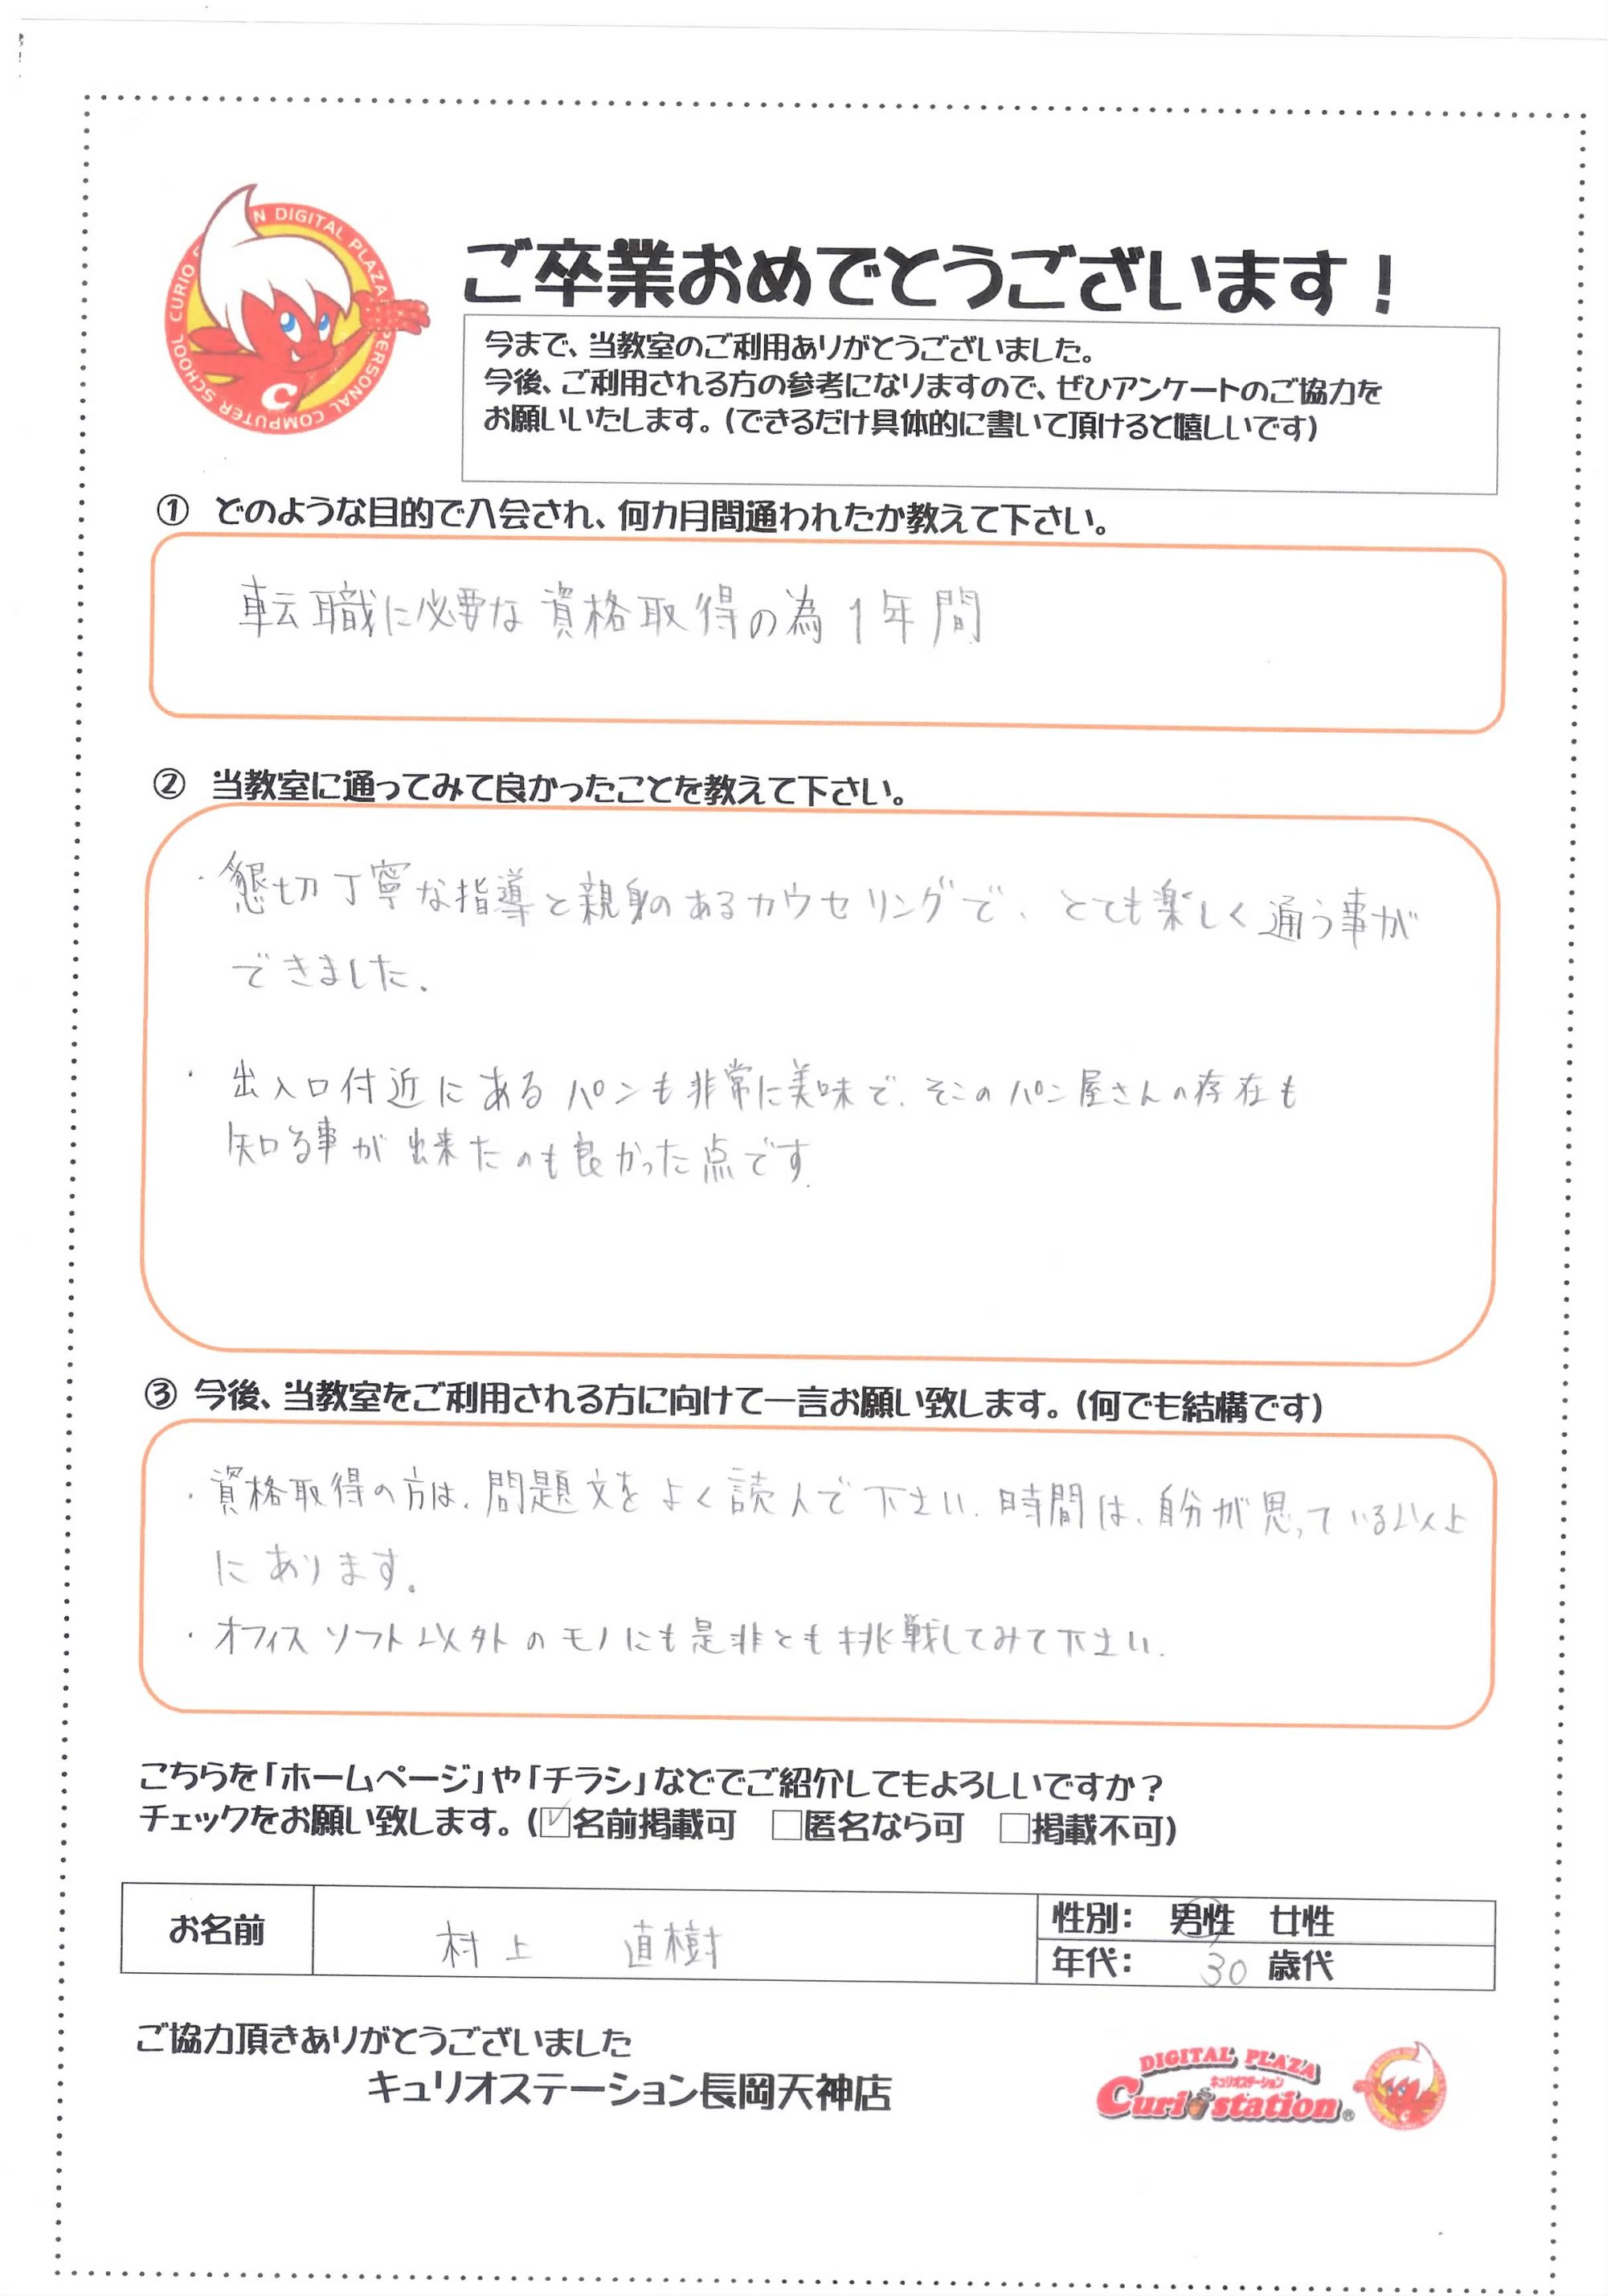 CURIO N DIGITAL PLAZA PERSONAL COMPUTER SCHOOL
C
ご卒業おめでとうございます！
今まで、当教室のご利用ありがとうございました。
今後、ご利用される方の参考になりますので、ぜひアンケートのご協力を
お願いいたします。（できるだけ具体的に書いて頂けると嬉しいです）
① どのような目的で入会され、何カ月間通われたか教えて下さい。
転職に必要な資格取得の為1年間
② 当教室に通ってみて良かったことを教えて下さい。
・懇切丁寧な指導と親身のあるカウセリングで、とても楽しく通う事が
できました。
・出入口付近にあるパンも非常に美味で、そこのパン屋さんの存在も
知る事が出来たのも良かった点です。
③ 今後、当教室をご利用される方に向けて一言お願い致します。（何でも結構です）
・資格取得の方は、問題文をよく読んで下さい。時間は、自分が思っている以上
にあります。
・オフィスソフト以外のモノにも是非とも挑戦してみて下さい。
こちらを「ホームページ」や「チラシ」などでご紹介してもよろしいですか？
チェックをお願い致します。（☑名前掲載可 □匿名なら可 □掲載不可）
お名前 村上 直樹 性別： 男性 女性
年代： 30 歳代
ご協力頂きありがとうございました
キュリオステーション長岡天神店
DIGITAL PLAZA
キュリオステーション
Curio station®